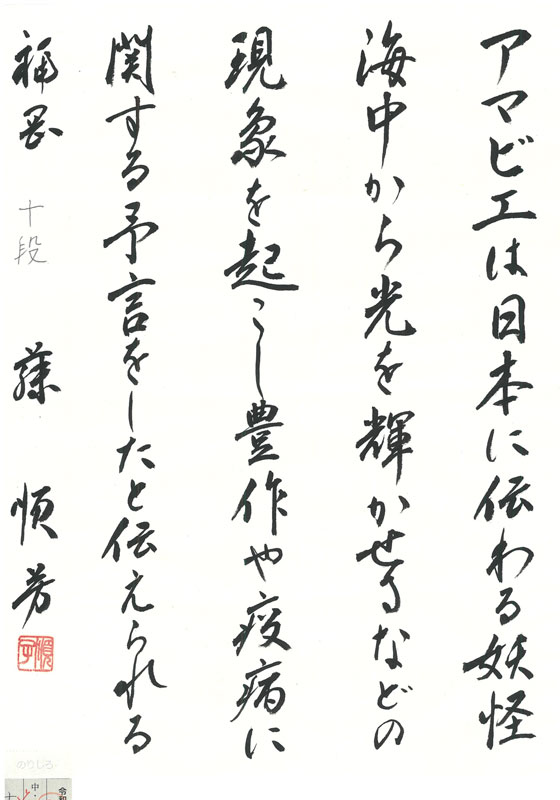 アマビエは日本に伝わる妖怪
海中から光を輝かせるなどの
現象を起こし豊作や疫病に
関する予言をしたと伝えられる
福岡 十段 藤 順芳
順子
のりしろ
令和
中